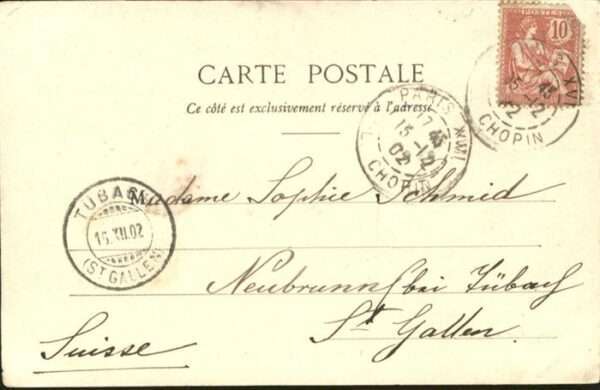 POSTES
10
CARTE POSTALE
Ce côté est exclusivement réservé à l'adresse
PARIS XVI
17 45
15 -12
02
CHOPIN
XVI
45
15 -12
02
CHOPIN
TUBACH
15.XII.02
(ST GALLEN)
Madame Sophie Schmid
Neubrunn (bei Tübach
St Gallen.
Suisse